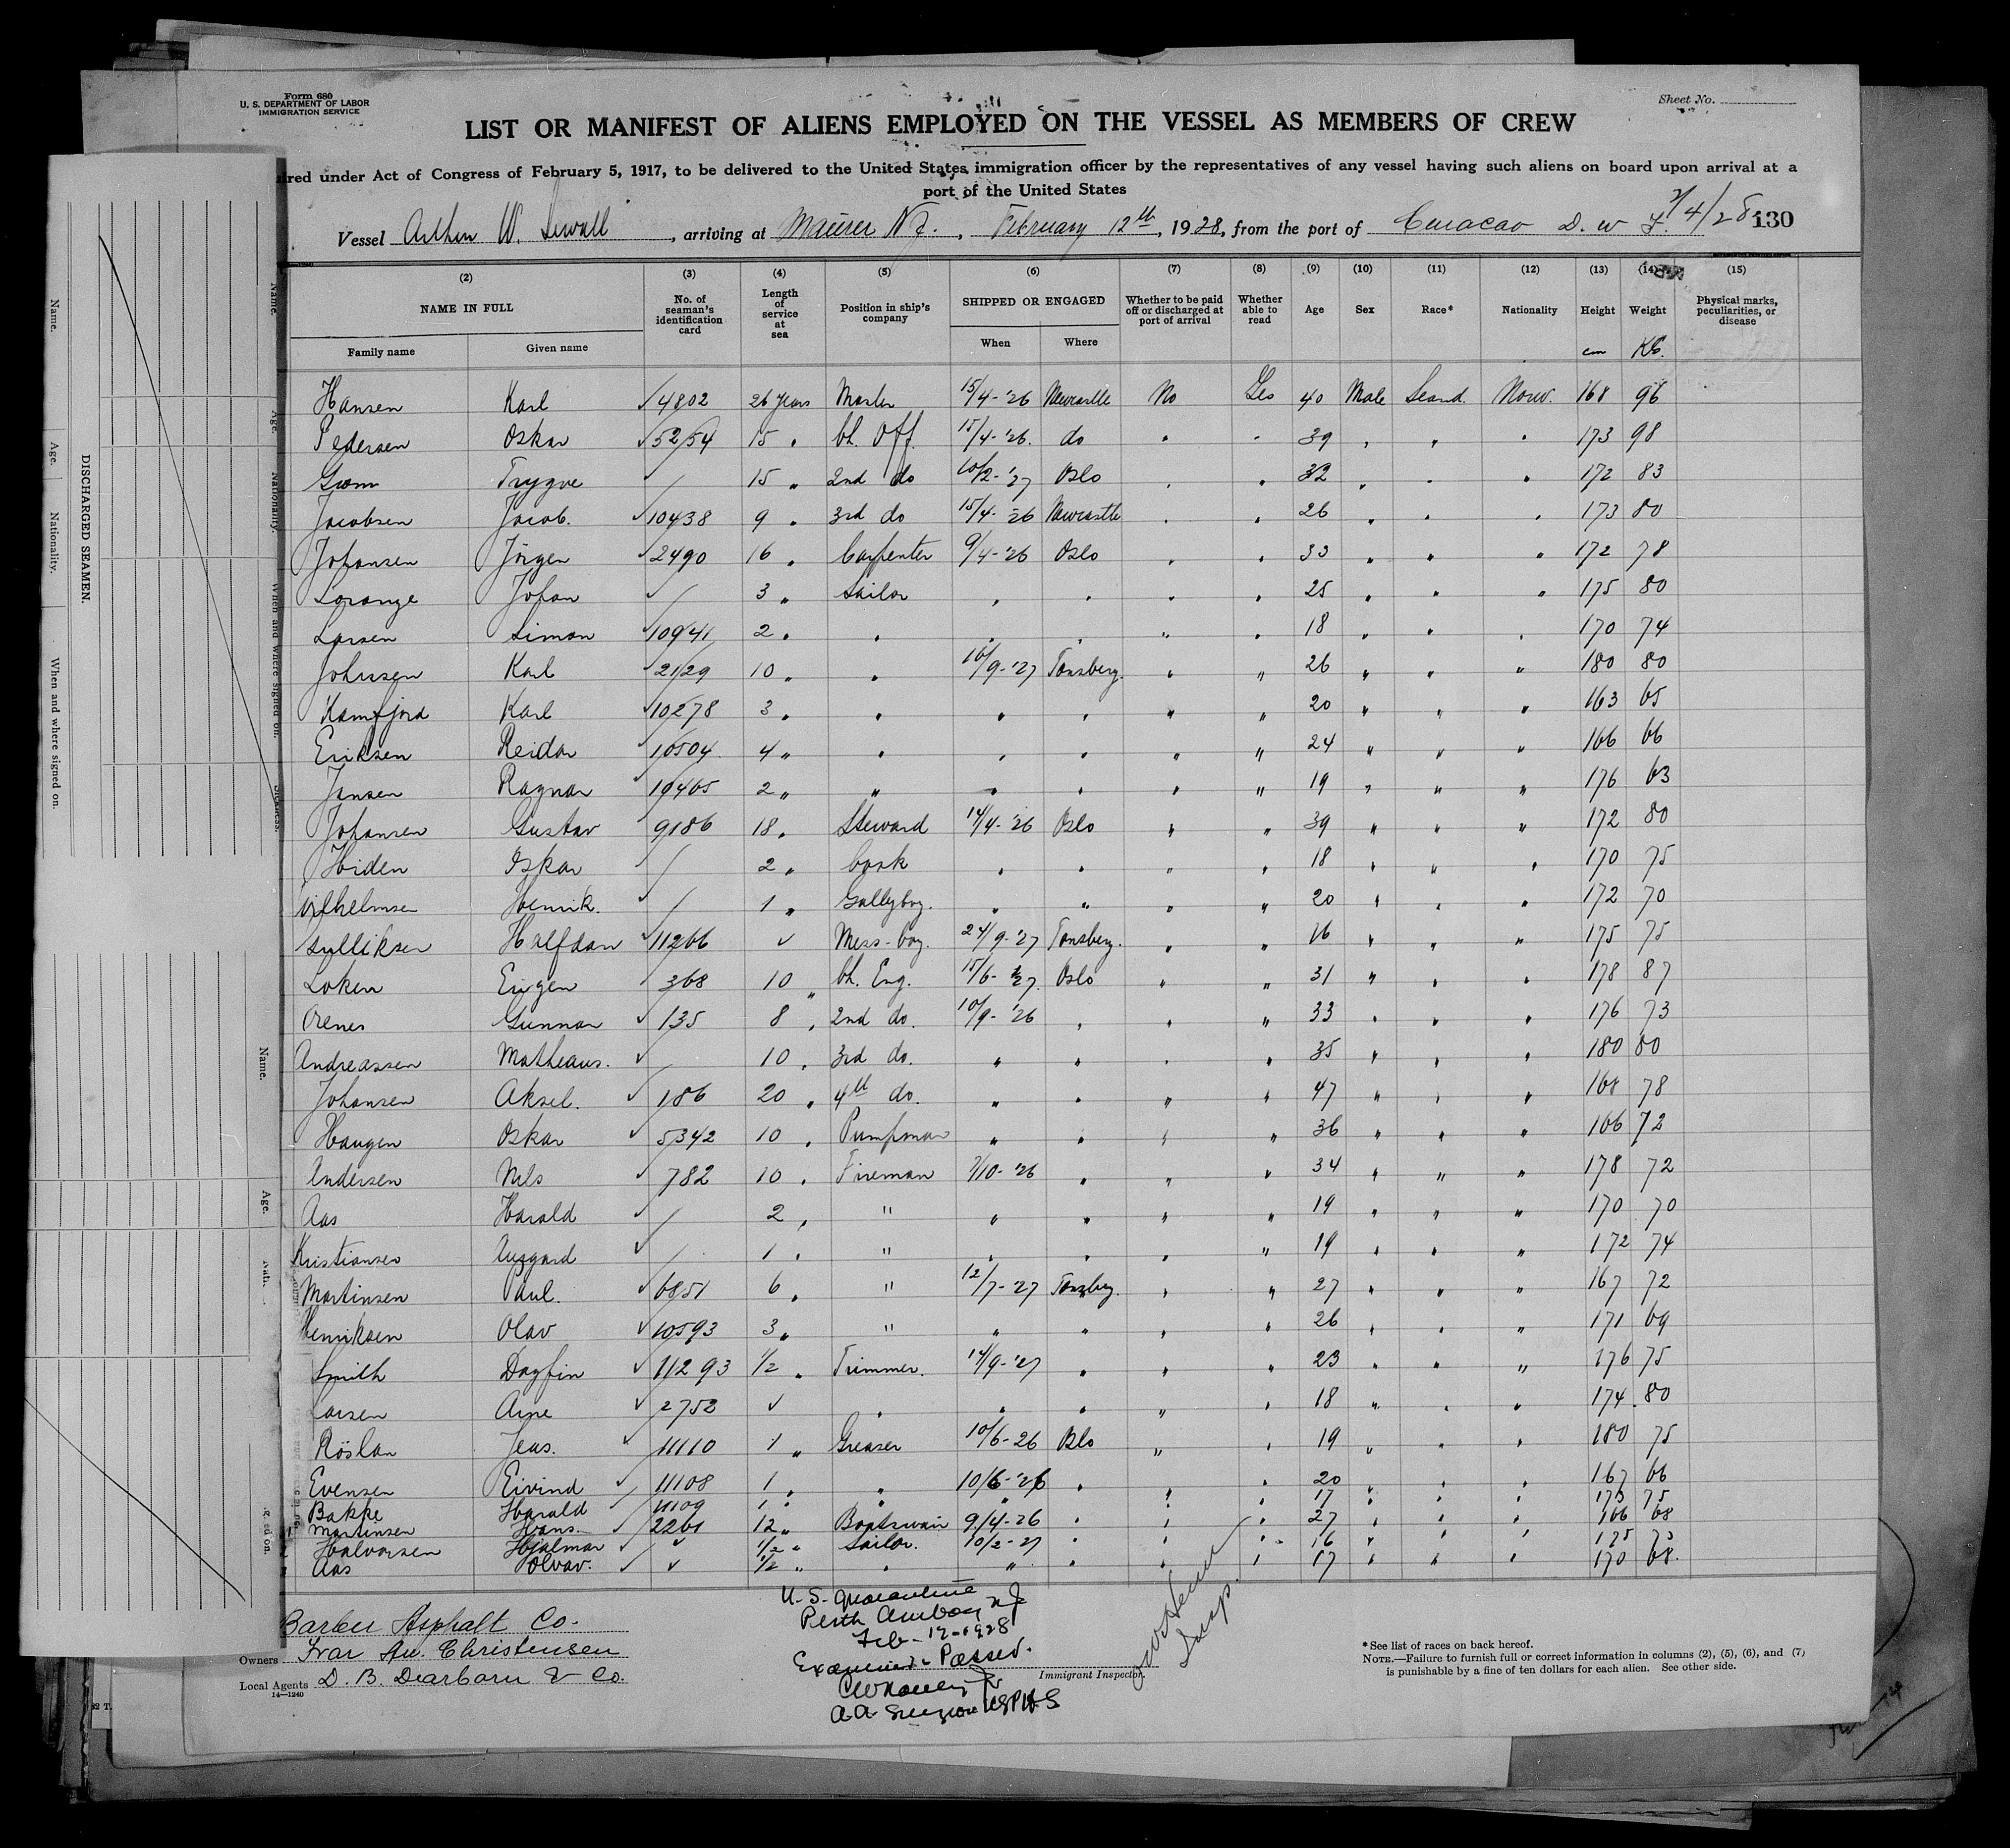 Form 680
U. S. DEPARTMENT OF LABOR
IMMIGRATION SERVICE
Sheet No.
LIST OR MANIFEST OF ALIENS EMPLOYED ON THE VESSEL AS MEMBERS OF CREW
red under Act of Congress of February 5, 1917, to be delivered to the United States immigration officer by the representatives of any vessel having such aliens on board upon arrival at a
port of the United States
Vessel Arthur W. Sewall, arriving at Maurer N.J., February 12th, 1928, from the port of Curacao D. W. I. 2/4/28 130
(2) (3) (4) (5) (6) (7) (8) (9) (10) (11) (12) (13) (14) (15)
NAME IN FULL No. of seaman's identification card Length of service at sea Position in ship's company SHIPPED OR ENGAGED Whether to be paid off or discharged at port of arrival Whether able to read Age Sex Race* Nationality Height Weight Physical marks, peculiarities, or disease
Family name Given name When Where cm KG.
Hansen Karl ✓ 4802 26 years Master 15/4-'26 Newcastle No Yes 40 Male Scand. Norw. 168 96
Pedersen Oskar ✓ 52/54 15 " Ch. Off. 15/4-'26. do " " 39 " " " 173 98
Trygve ✓ 15 " 2nd do 10/2-'27 Oslo " " 32 " " " 172 83
Jacobsen Jacob. ✓ 10438 9 " 3rd do 15/4-'26 Newcastle " " 26 " " " 173 80
Johansen Jörgen ✓ 2490 16 " Carpenter 9/4-'26 Oslo " " 33 " " " 172 78
Lorange Johan ✓ 3 " Sailor " " " " 25 " " " 175 80
Larsen Simon ✓ 10941 2 " " " " " " 18 " " " 170 74
Johnsen Karl ✓ 2129 10 " " 16/9-'27 Tonsberg. " " 26 " " " 180 80
Kamfjord Karl ✓ 10278 3 " " " " " " 20 " " " 163 65
Eriksen Reidar ✓ 10504 4 " " " " " " 24 " " " 166 66
Jansen Ragnar ✓ 10465 2 " " " " " " 19 " " " 176 63
Johansen Gustav 9186 18 " Steward 14/4-'26 Oslo " " 39 " " " 172 80
Hiden Oskar ✓ 2 " Cook " " " " 18 " " " 170 75
Vilhelmsen Henrik. ✓ 1 " Galleyboy. " " " " 20 " " " 172 70
Gulliksen Halfdan ✓ 11266 ✓ Mess-boy. 24/9-'27 Tonsberg. " " 16 " " " 175 75
Loken Eugen ✓ 368 10 " Ch. Eng. 15/6-'27. Oslo " " 31 " " " 178 87
Orenes Gunnar ✓ 135 8 " 2nd do. 10/9-'26 " " " 33 " " " 176 73
Andreassen Matheaus. ✓ 10 " 3rd do. " " " " 35 " " " 180 80
Johansen Aksel. ✓ 186 20 " 4th do. " " " " 47 " " " 168 78
Haugen Oskar ✓ 5342 10 " Pumpman " " " " 36 " " " 166 72
Andersen Nils ✓ 782 10 " Fireman 7/10-'26 " " " 34 " " " 178 72
Aas Harald ✓ 2 " " " " " " 19 " " " 170 70
Kristiansen Ausgard ✓ 1 " " " " " " 19 " " " 172 74
Martinsen Paul. ✓ 6851 6 " " 12/7-'27 Tonsberg. " " 27 " " " 167 72
Henriksen Olav ✓ 10593 3 " " " " " " 26 " " " 171 69
Smith Dagfin ✓ 11293 1/2 " Trimmer. 14/9-'27 " " " 23 " " " 176 75
Larsen Arne ✓ 2752 ✓ " " " " " 18 " " " 174 80
Röslan Jens. ✓ 11110 1 " Greaser 10/6-26 Oslo " " 19 " " " 180 75
Evensen Eivind ✓ 11108 1 " " 10/6-'26 " " " 20 " " " 167 66
Bakke Harald ✓ 11109 1 " " " " " 17 " " " 173 75
Martinsen Hans. ✓ 2261 12 " Boatswain 9/4-26 " " " 27 " " " 166 68
Halvorsen Hjalmar ✓ ✓ 1/2 " Sailor. 10/2-27 " " " 16 " " " 175 73
Aas Olvav. ✓ ✓ 1/2 " " " " " " 17 " " " 170 68.
U. S. Quarantine
Perth Amboy NJ
Feb-12-1928
Examined & Passed.
A.A. Surgeon USPHS
Immigrant Inspector.
Insp.
Barber Asphalt Co.
Owners Ivar An. Christensen
Local Agents D. B. Dearborn & Co.
14—1240
*See list of races on back hereof.
NOTE.—Failure to furnish full or correct information in columns (2), (5), (6), and (7)
is punishable by a fine of ten dollars for each alien. See other side.
DISCHARGED SEAMEN.
Name. Age. Nationality. When and where signed on.
Name. Age. Nationality. When and where signed on.
Name. Age.